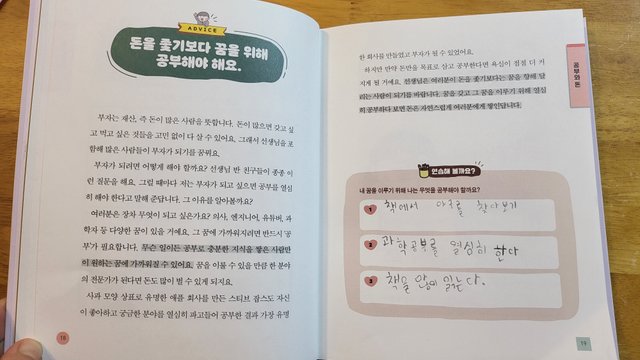 ADVICE
돈을 좇기보다 꿈을 위해
공부해야 해요.
부자는 재산, 즉 돈이 많은 사람을 뜻합니다. 돈이 많으면 갖고 싶
고 먹고 싶은 것들을 고민 없이 다 살 수 있어요. 그래서 선생님을 포
함해 많은 사람들이 부자가 되기를 꿈꿔요.
부자가 되려면 어떻게 해야 할까요? 선생님 반 친구들이 종종 이
런 질문을 해요. 그럴 때마다 저는 부자가 되고 싶으면 공부를 열심
히 해야 한다고 말해 준답니다. 그 이유를 알아볼까요?
여러분은 장차 무엇이 되고 싶은가요? 의사, 엔지니어, 유튜버, 과
학자 등 다양한 꿈이 있을 거예요. 그 꿈에 가까워지려면 반드시 '공
부'가 필요합니다. 무슨 일이든 공부로 충분한 지식을 쌓은 사람만
이 원하는 꿈에 가까워질 수 있어요. 꿈을 이룰 수 있을 만큼 한 분야
의 전문가가 된다면 돈도 많이 벌 수 있게 되지요.
사과 모양 상표로 유명한 애플 회사를 만든 스티브 잡스도 자신
이 좋아하고 궁금한 분야를 열심히 파고들어 공부한 결과 가장 유명
18
한 회사를 만들었고 부자가 될 수 있었어요.
하지만 만약 돈만을 목표로 삼고 공부한다면 욕심이 점점 더 커
지게 될 거예요. 선생님은 여러분이 돈을 좇기보다는 꿈을 향해 달
리는 사람이 되기를 바랍니다. 꿈을 갖고 그 꿈을 이루기 위해 열심
히 공부하다 보면 돈은 자연스럽게 여러분에게 쌓인답니다.
공부와 돈
연습해 볼까요?
내 꿈을 이루기 위해 나는 무엇을 공부해야 할까요?
1 책에서 아이디어를 찾아보기
2 과학공부를 열심히 한다
3 책을 많이 읽는다.
19